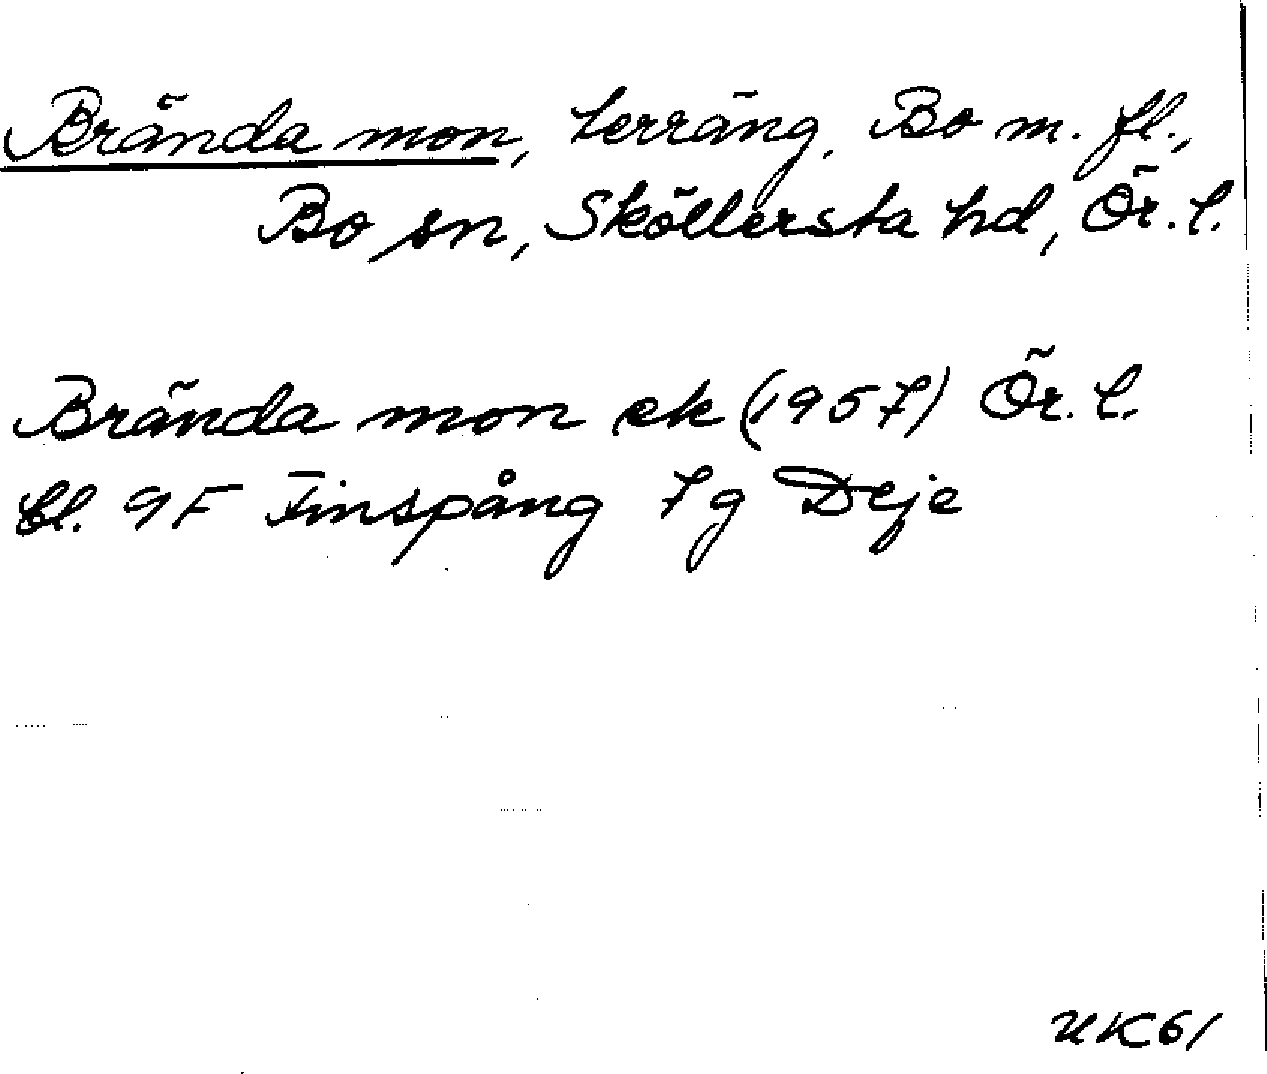 Brända mon, terräng, Bo m. fl.,
Bo sn, Sköllersta hd, Ör. l.
Brända mon ek (1957) Ör. l.
bl. 9F Finspång 7g Deje
UK61